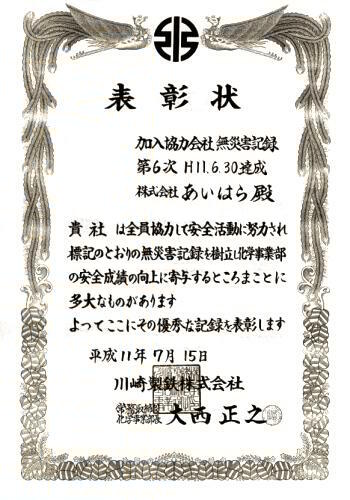 表彰状
加入協力会社 無災害記録
第6次 H11.6.30達成
株式会社 あいはら 殿
貴社は全員協力して安全活動に努力され
標記のとおりの無災害記録を樹立し化学事業部
の安全成績の向上に寄与するところまことに
多大なものがあります
よってここにその優秀な記録を表彰します
平成11年7月15日
川崎製鉄株式会社
常務取締役
化学事業部長 大西正之